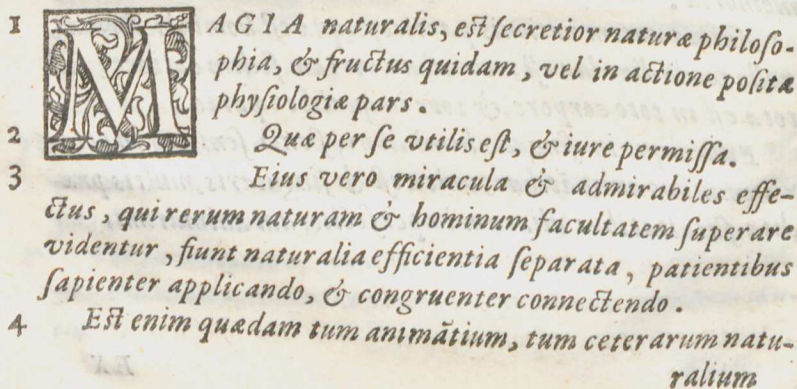 1 MAGIA naturalis, est secretior naturæ philoso-
phia, & fructus quidam, vel in actione positæ
physiologiæ pars.
2 Quæ per se vtilis est, & iure permissa.
3 Eius vero miracula & admirabiles effe-
ctus, qui rerum naturam & hominum facultatem superare
videntur, fiunt naturalia efficientia separata, patientibus
sapienter applicando, & congruenter connectendo.
4 Est enim quædam tum animãtium, tum ceterarum natu-
ralium